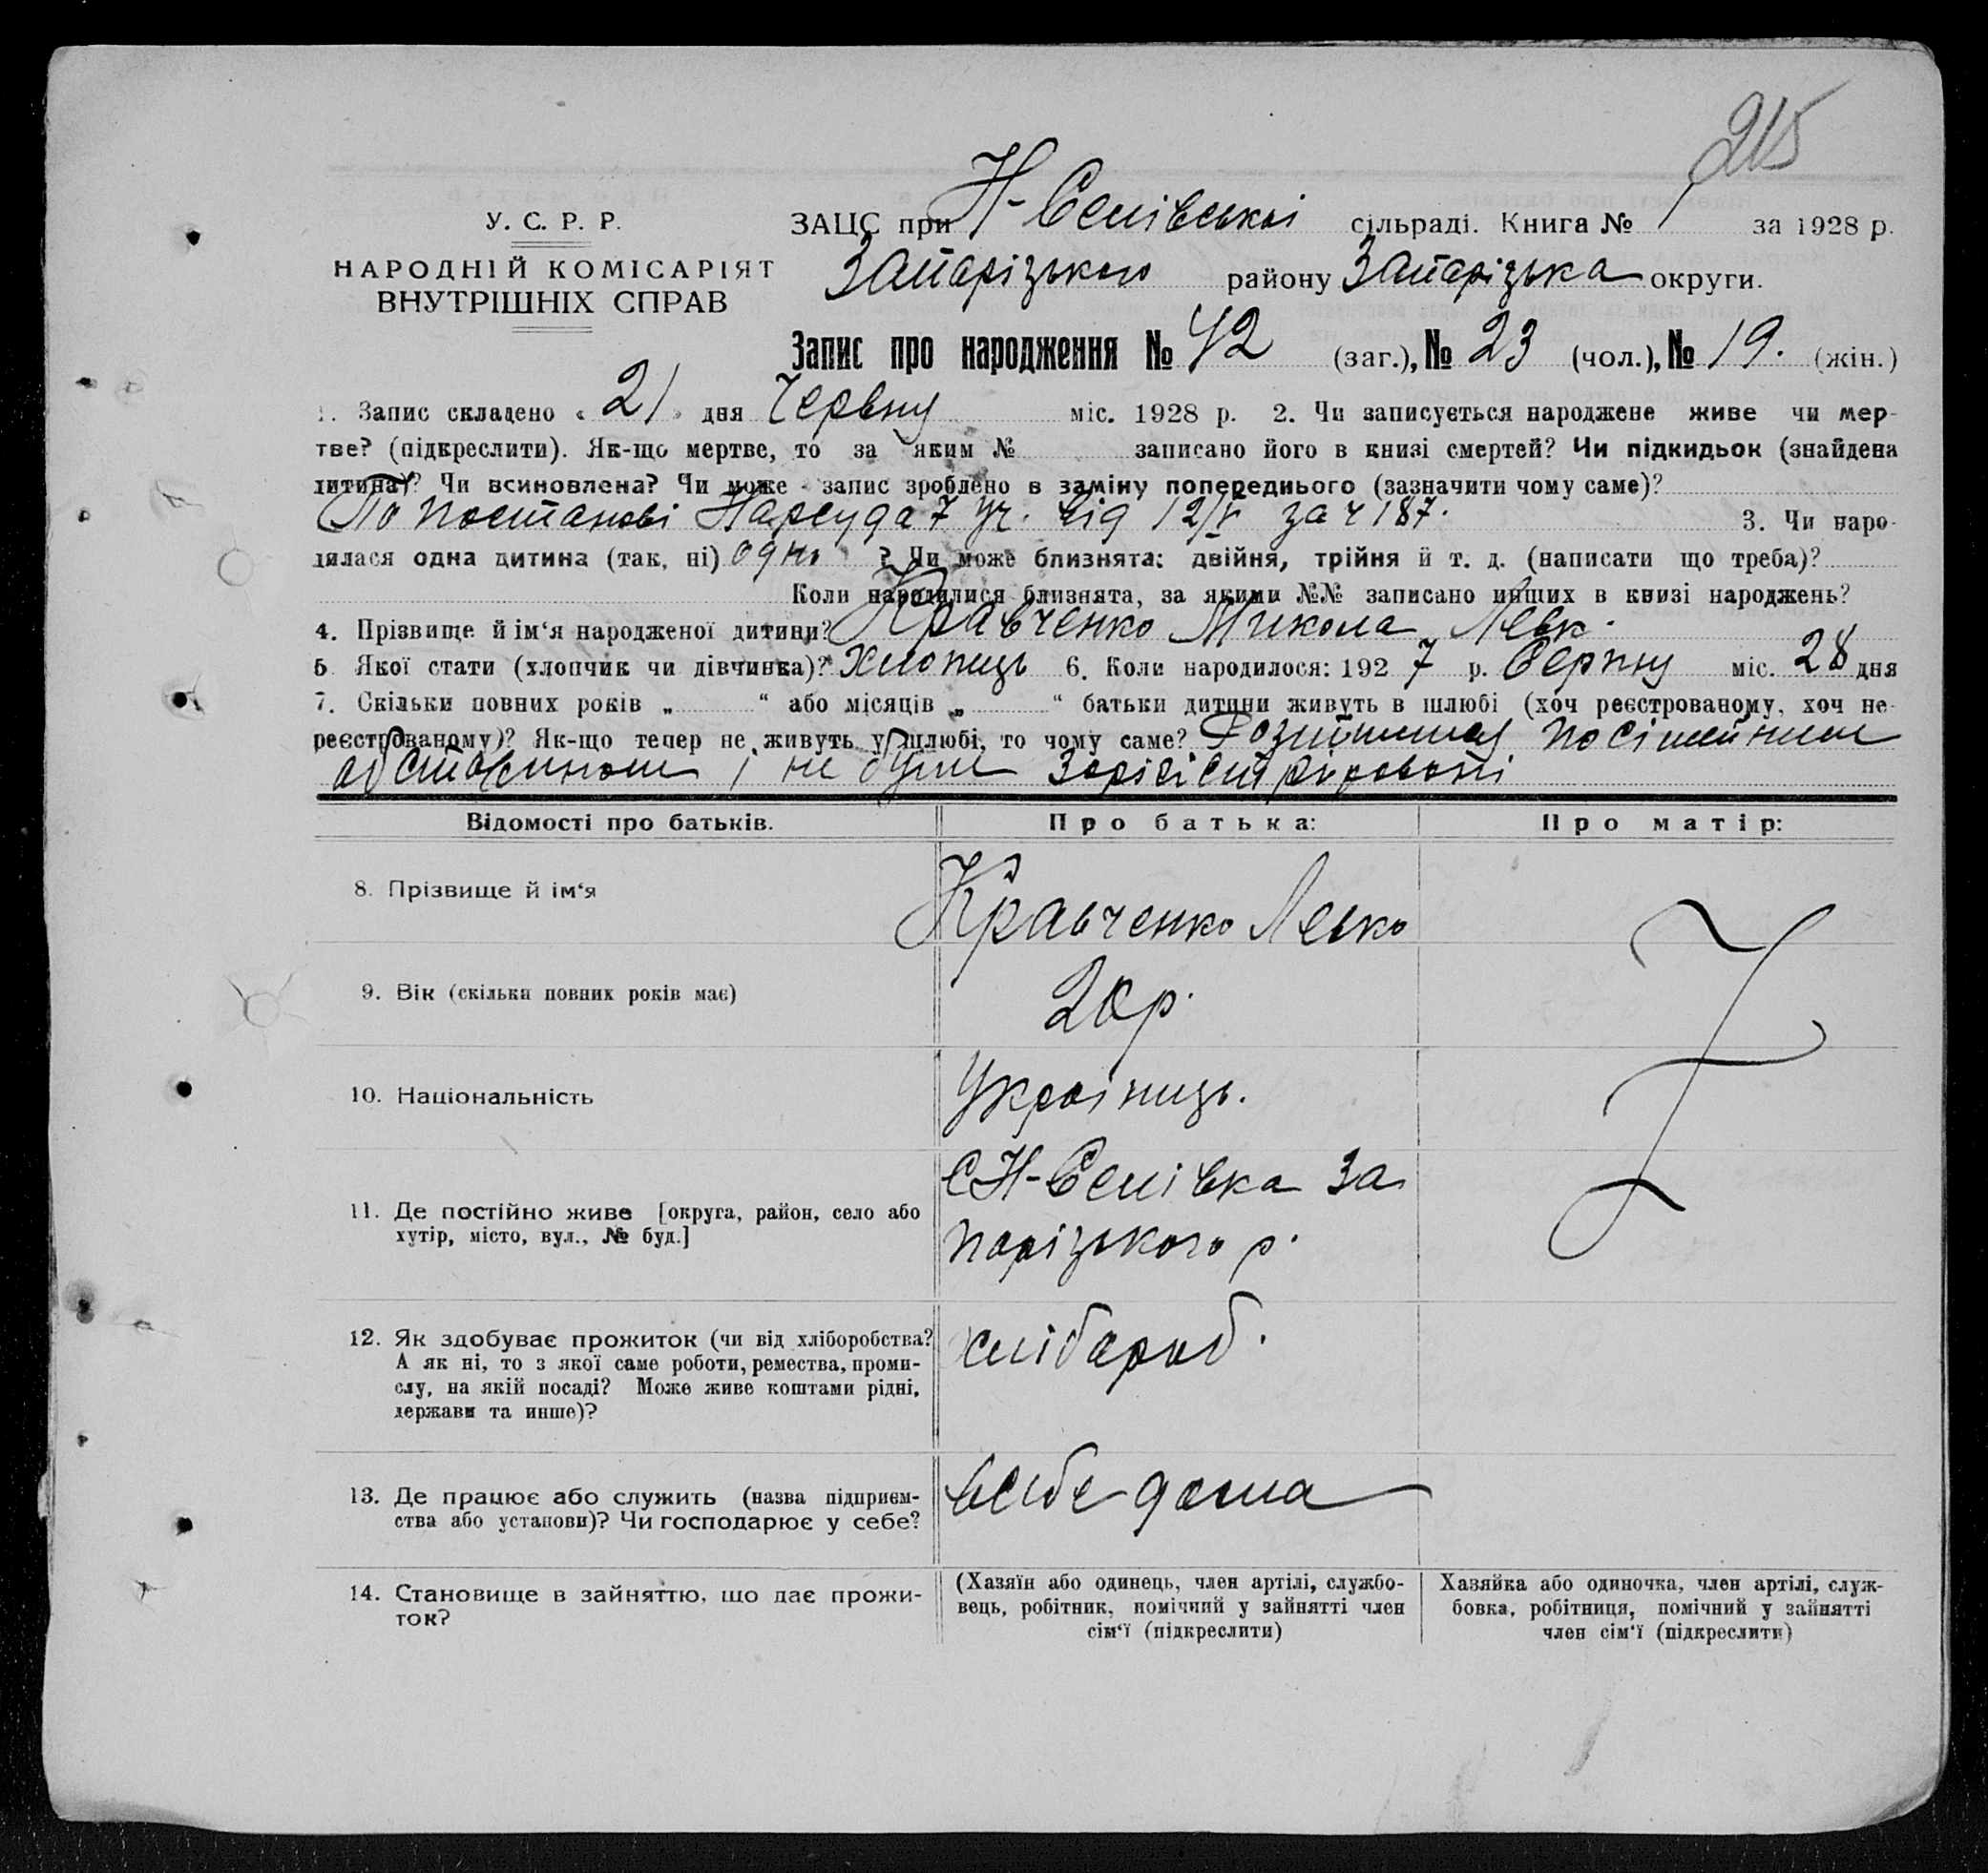 215
У. С. Р. Р.
НАРОДНІЙ КОМІСАРІЯТ
ВНУТРІШНІХ СПРАВ
ЗАЦС при Н-Єлнівській сільраді. Книга № 1 за 1928 р.
Запарізького району Запарізька округи.
Запис про народження № 42 (заг.), № 23 (чол.), № 19. (жін.)
1. Запис складено « 21 » дня Червня міс. 1928 р. 2. Чи записується народжене живе чи мер-
тве? (підкреслити). Як-що мертве, то за яким № записано його в книзі смертей? Чи підкидьок (знайдена
дитина)? Чи всиновлена? Чи може запис зроблено в заміну попереднього (зазначити чому саме)?
По постанові Нарсуда 7 уч. від 12/V за ч 187. 3. Чи наро-
дилася одна дитина (так, ні) одна ? Чи може близнята: двійня, трійня й т. д. (написати що треба)?
Коли народилися близнята, за якими №№ записано инших в книзі народжень?
4. Прізвище й ім‘я народженої дитини? Кравченко Микола Левк.
5 Якої стати (хлопчик чи дівчинка)? Хлопиць 6. Коли народилося: 1927 р. Серпня міс. 28 дня
7. Скільки повних років „ “ або місяців „ “ батьки дитини живуть в шлюбі (хоч реєстрованому, хоч не-
реєстрованому)? Як-що тепер не живуть у шлюбі, то чому саме? Розійшлися по сімейним
обставинам і не були
Відомості про батьків.
Про батька:
Про матір:
8. Прізвище й ім‘я
Кравченко Левко
9. Вік (скільки повних років має)
20р.
10. Національність
Українець.
11. Де постійно живе [округа, район, село або
хутір, місто, вул., № буд.]
За
парізького р.
12. Як здобуває прожиток (чи від хліборобства?
А як ні, то з якої саме роботи, ремества, проми-
слу, на якій посаді? Може живе коштами рідні,
держави та инше)?
хлібароб.
13. Де працює або служить (назва підприєм-
ства або установи)? Чи господарює у себе?
всибе дома
14. Становище в зайняттю, що дає прожи-
ток?
(Хазяїн або одинець, член артілі, службо-
вець, робітник, помічний у зайнятті член
сім‘ї (підкреслити)
Хазяйка або одиночка, член артілі, служ-
бовка, робітниця, помічний у зайнятті
член сім‘ї (підкреслити)